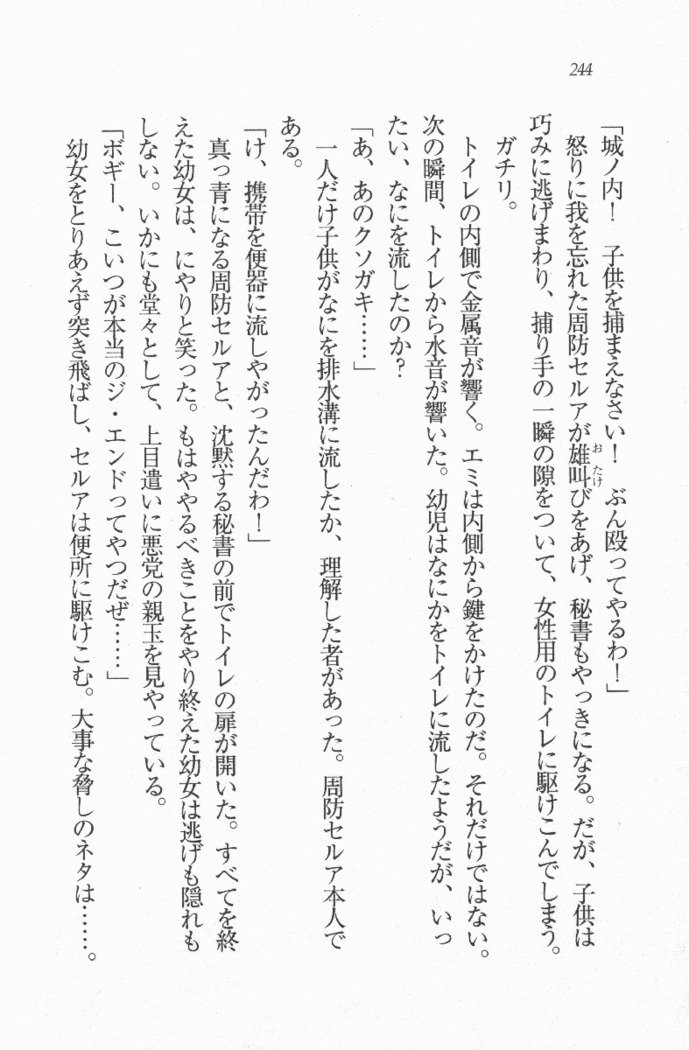 244
「城ノ内！　子供を捕まえなさい！　ぶん殴ってやるわ！」
怒りに我を忘れた周防セルアが雄叫びをあげ、秘書もやっきになる。だが、子供は
おたけ
巧みに逃げまわり、捕り手の一瞬の隙をついて、女性用のトイレに駆けこんでしまう。
ガチリ。
トイレの内側で金属音が響く。エミは内側から鍵をかけたのだ。それだけではない。
次の瞬間、トイレから水音が響いた。幼児はなにかをトイレに流したようだが、いっ
たい、なにを流したのか？
「あ、あのクソガキ……」
一人だけ子供がなにを排水溝に流したか、理解した者があった。周防セルア本人で
ある。
「け、携帯を便器に流しやがったんだわ！」
真っ青になる周防セルアと、沈黙する秘書の前でトイレの扉が開いた。すべてを終
えた幼女は、にやりと笑った。もはややるべきことをやり終えた幼女は逃げも隠れも
しない。いかにも堂々として、上目遣いに悪党の親玉を見やっている。
「ボギー、こいつが本当のジ・エンドってやつだぜ……」
幼女をとりあえず突き飛ばし、セルアは便所に駆けこむ。大事な脅しのネタは……。